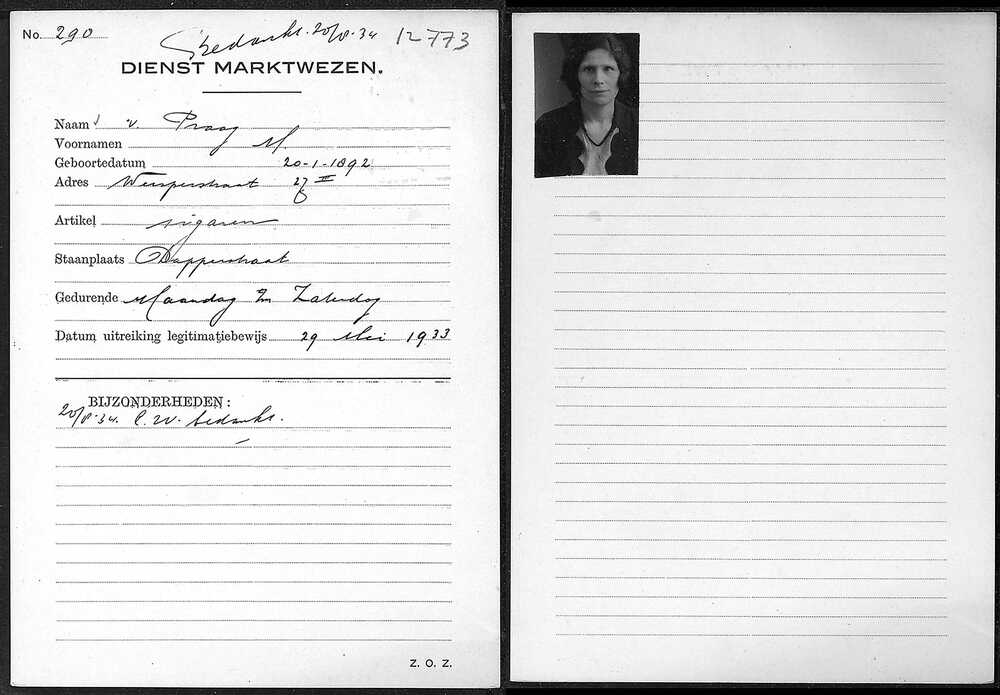 No. 290
Bedankt. 20/8-34 12773
DIENST MARKTWEZEN.
Naam v. Praag
Voornamen M.
Geboortedatum 20-1-1892
Adres Weesperstraat II
Artikel sigaren
Staanplaats Dapperstraat
Gedurende Maandag Zaterdag
Datum uitreiking legitimatiebewijs 29 Mei 1933
BIJZONDERHEDEN:
20/8-34. bedankt.
Z. O. Z.